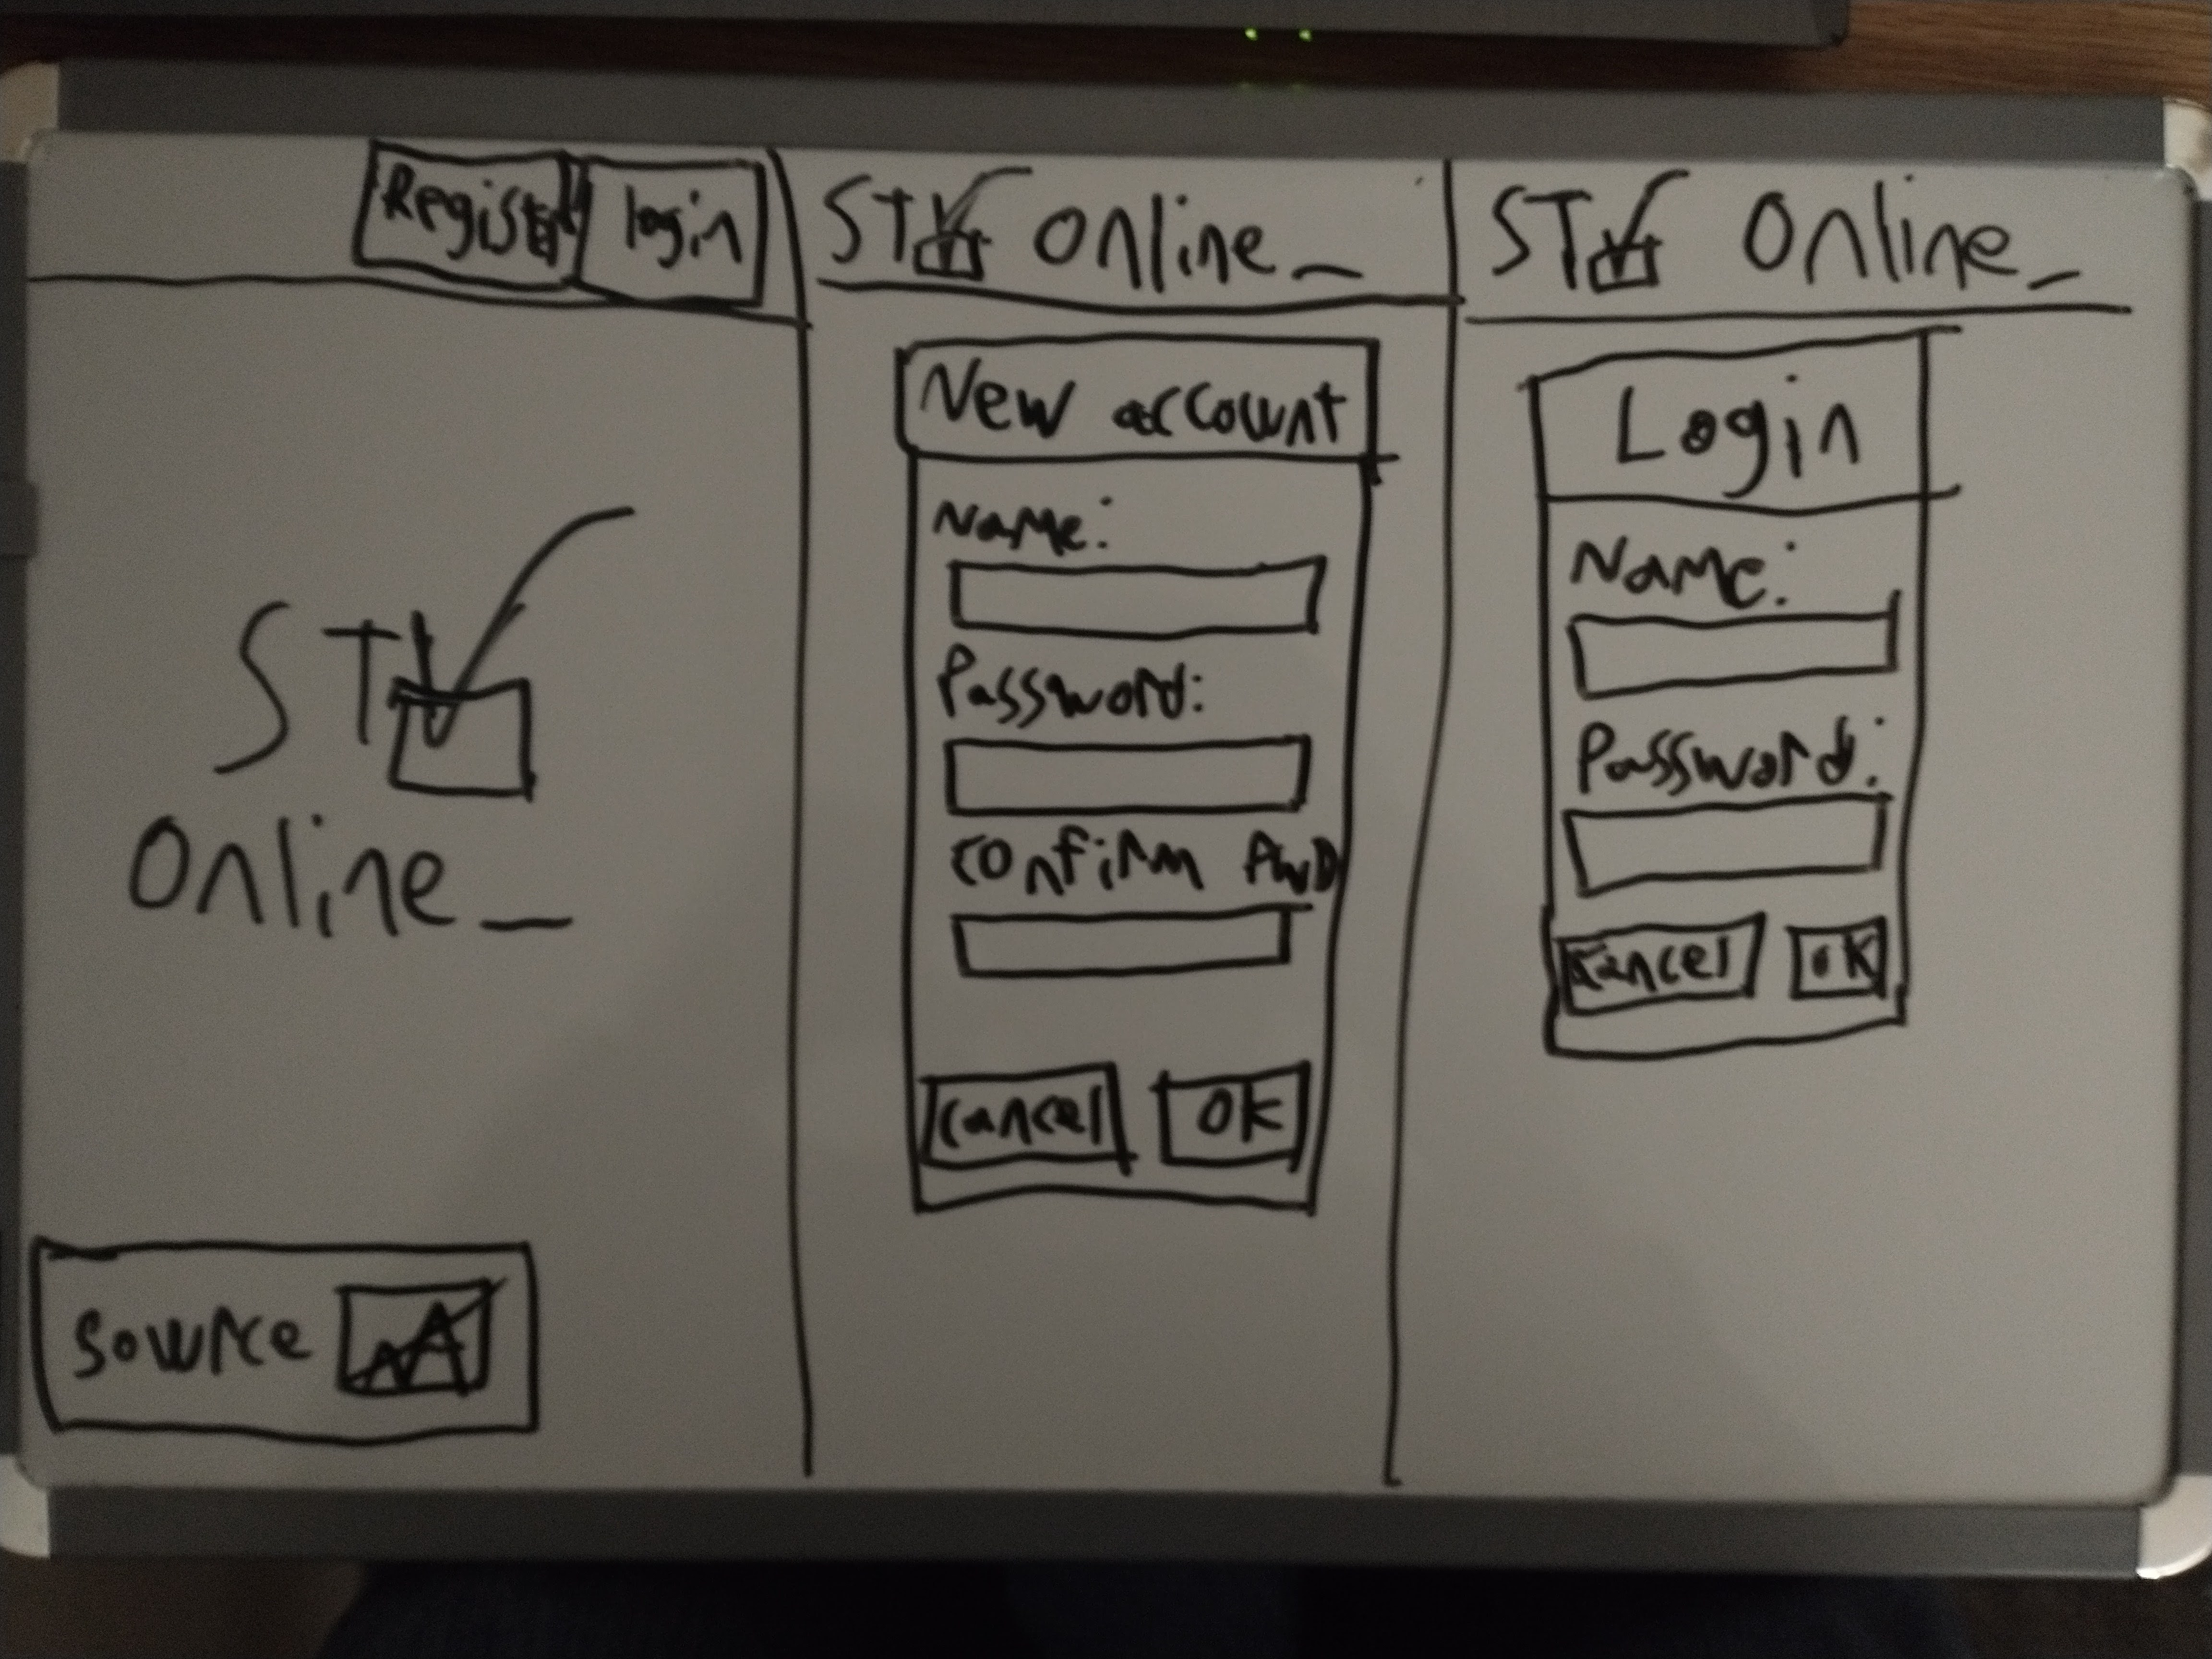 Register login
ST
Online_
Source
ST Online_
New account
Name:
Password:
Confirm PWD
Cancel OK
ST Online_
Login
Name:
Password:
Cancel OK